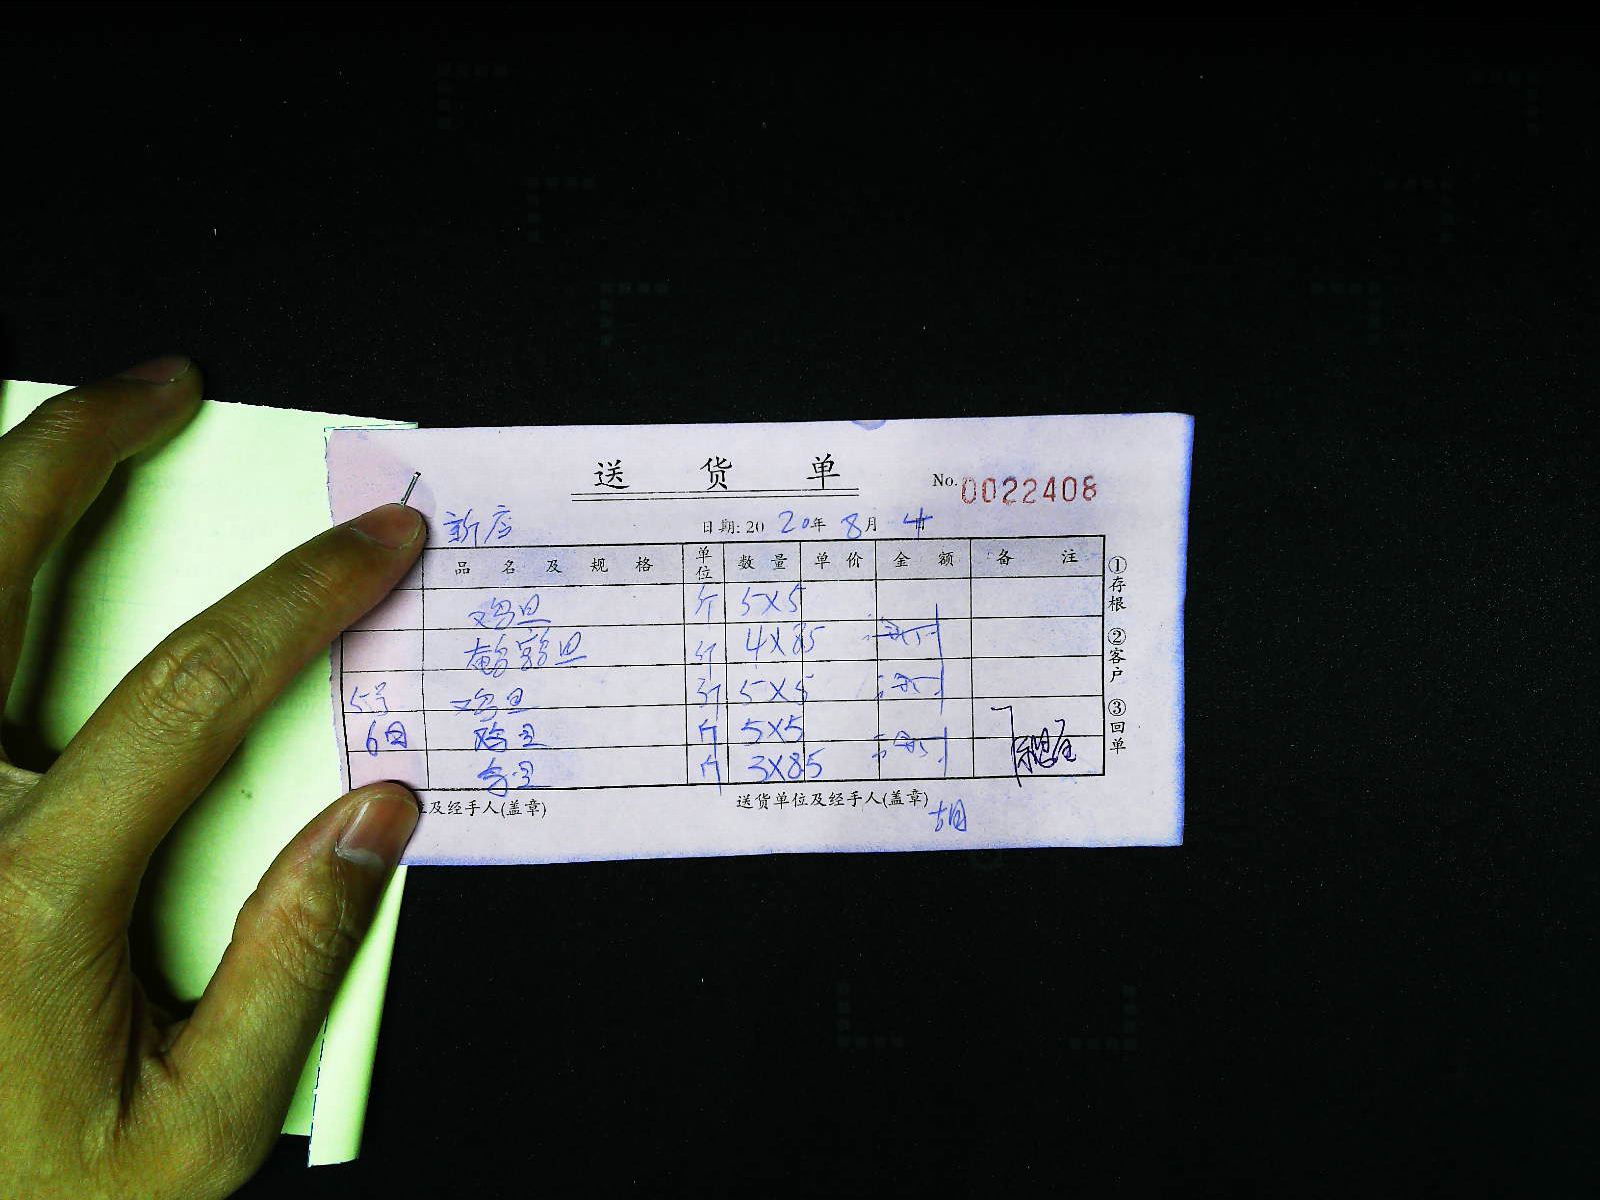 送 货 单
No. 0022408
新店 日期: 20 20年 8月 4日
品 名 及 规 格 单位 数 量 单 价 金 额 备 注
鸡旦 斤 5X5
鹌鹑旦 斤 4X85
5号 鸡旦 斤 5X5
6日 鸡旦 斤 5X5
旦 斤 3X85
位及经手人(盖章) 送货单位及经手人(盖章) 胡
①存根 ②客户 ③回单